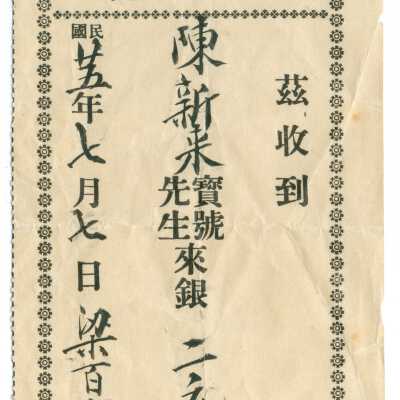 茲收到
陳新来寶號先生來銀二
民國廿五年七月七日梁百